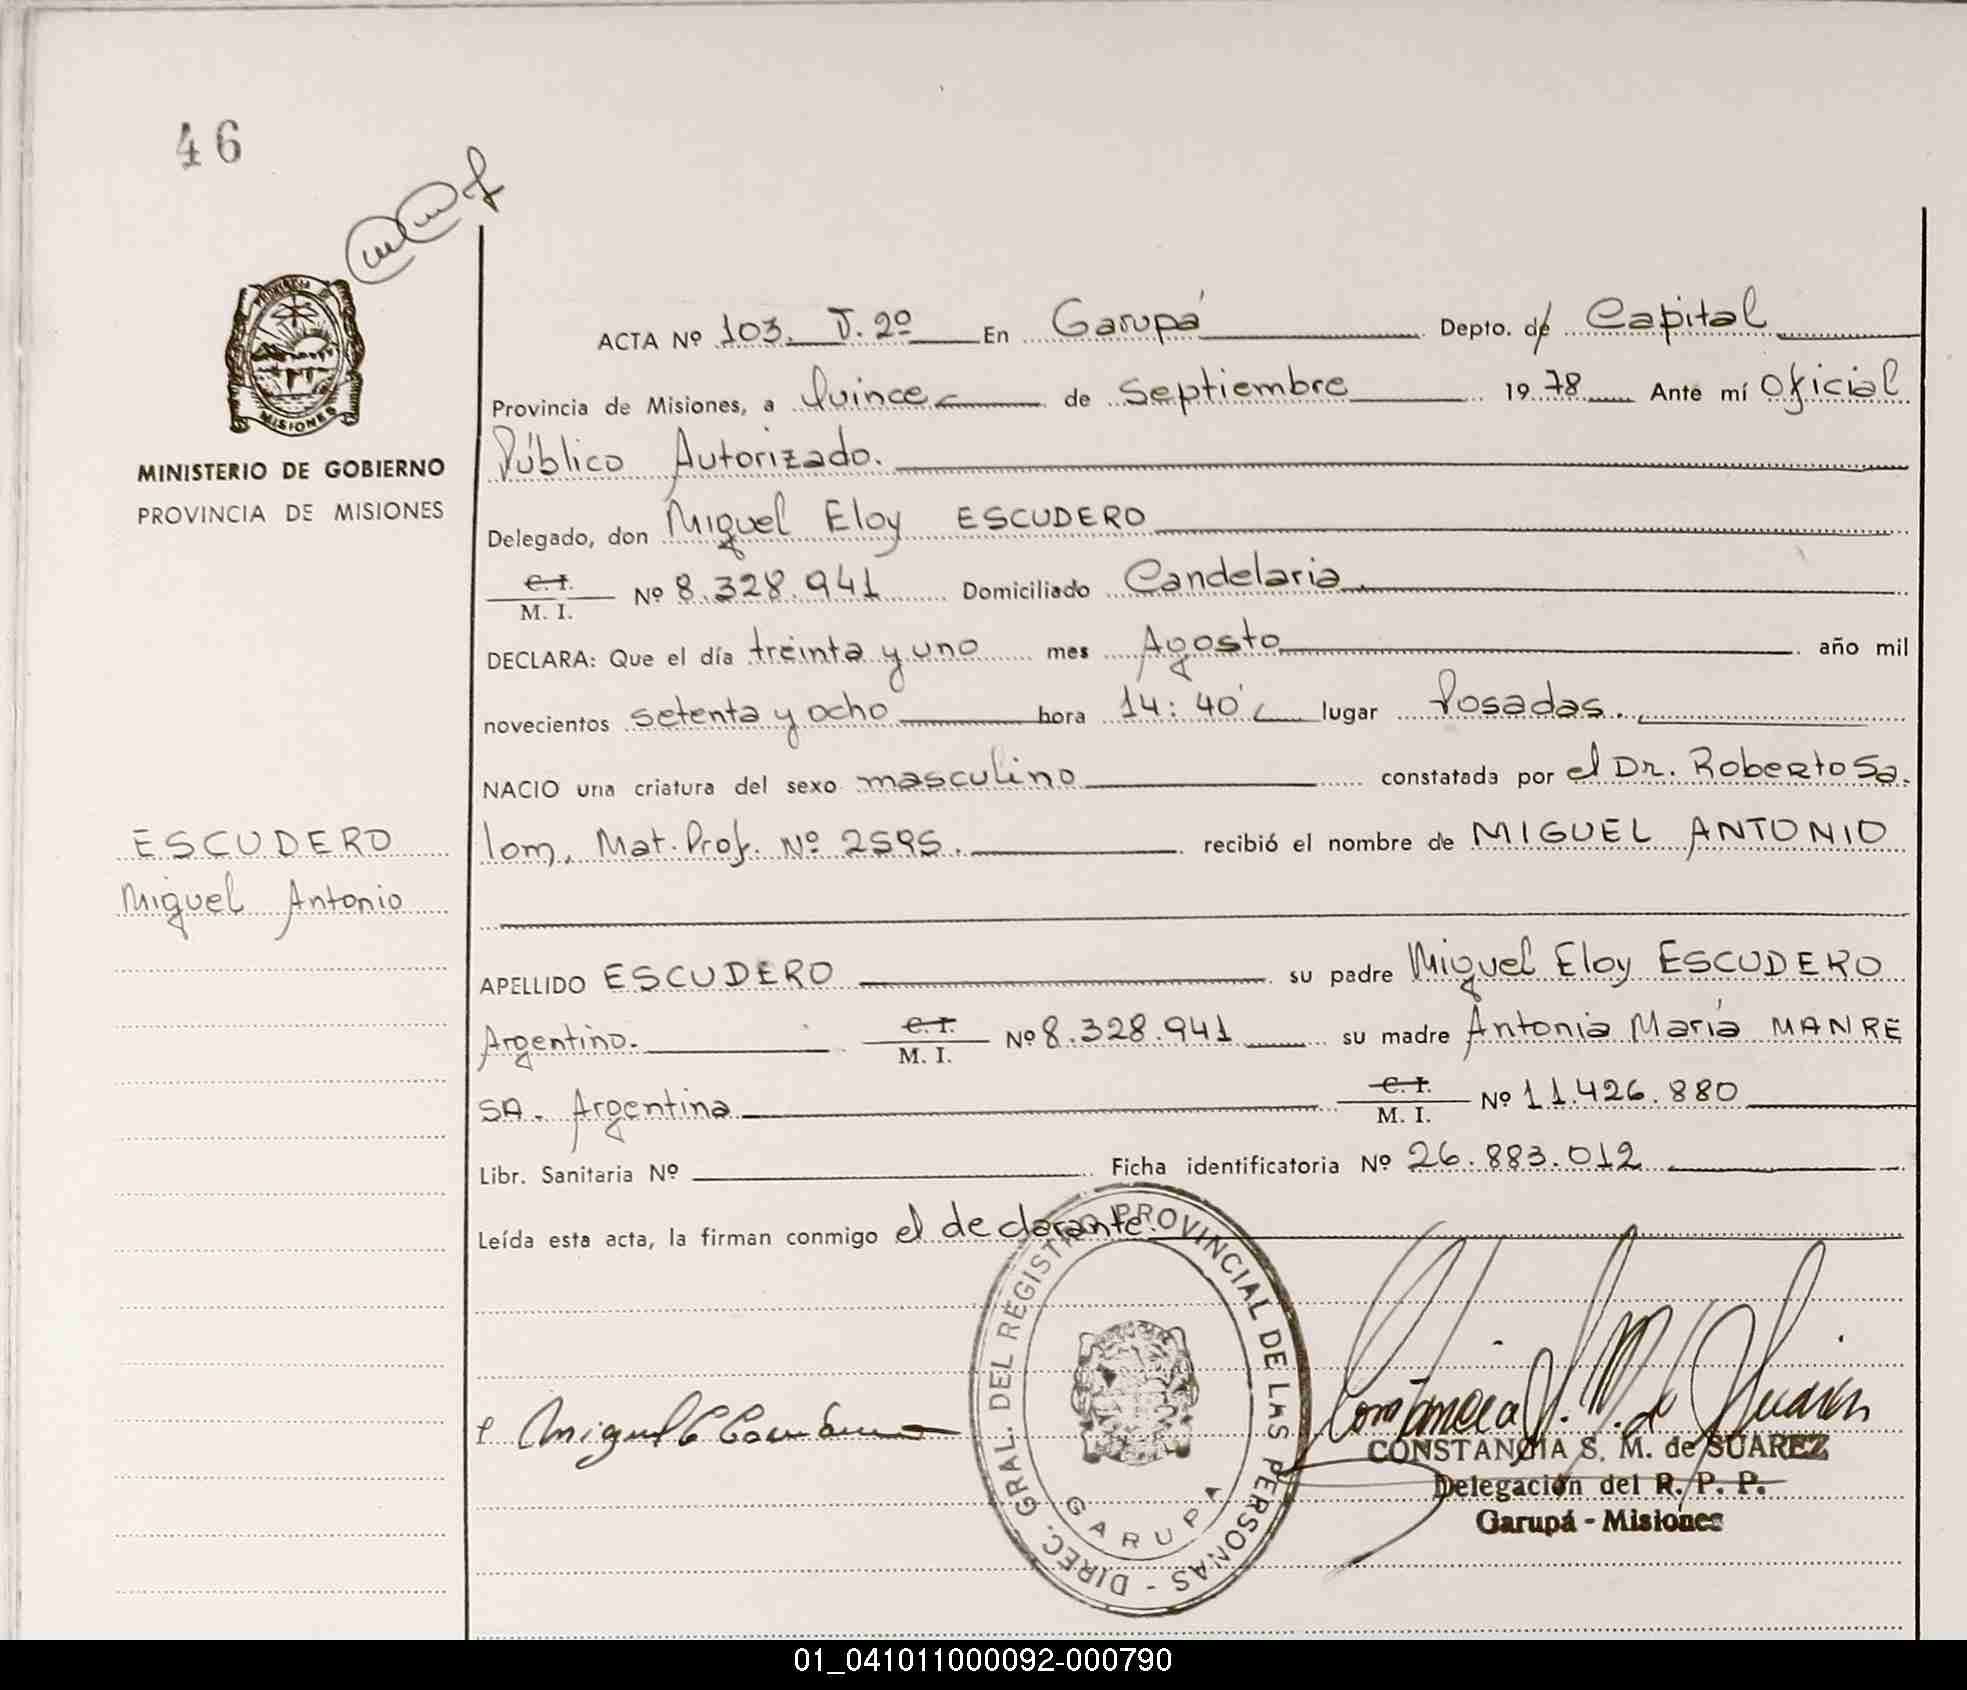 46
ACTA Nº 103. T. 2º En Garupá Depto. de Capital
Provincia de Misiones, a Quince de Septiembre 1978 Ante mí Oficial
Público Autorizado.
MINISTERIO DE GOBIERNO
PROVINCIA DE MISIONES
MISIONES
Delegado, don Miguel Eloy ESCUDERO
C. I.
M. I. Nº 8.328.941 Domiciliado Candelaria.
DECLARA: Que el día treinta y uno mes Agosto año mil
novecientos setenta y ocho hora 14:40' lugar Posadas.
NACIO una criatura del sexo masculino constatada por el Dr. Roberto Sa.
lom, Mat. Prof. Nº 2595. recibió el nombre de MIGUEL ANTONIO
ESCUDERO
Miguel Antonio
APELLIDO ESCUDERO su padre Miguel Eloy ESCUDERO
Argentino. C. I.
M. I. Nº 8.328.941 su madre Antonia María MANRE
SA. Argentina C. I.
M. I. Nº 11.426.880
Libr. Sanitaria Nº Ficha identificatoria Nº 26.883.012
Leída esta acta, la firman conmigo el declarante.
DIREC. GRAL. DEL REGISTRO PROVINCIAL DE LAS PERSONAS -
GARUPA
CONSTANCIA S. M. de SUAREZ
Delegación del R. P. P.
Garupá - Misiones
01_041011000092-000790